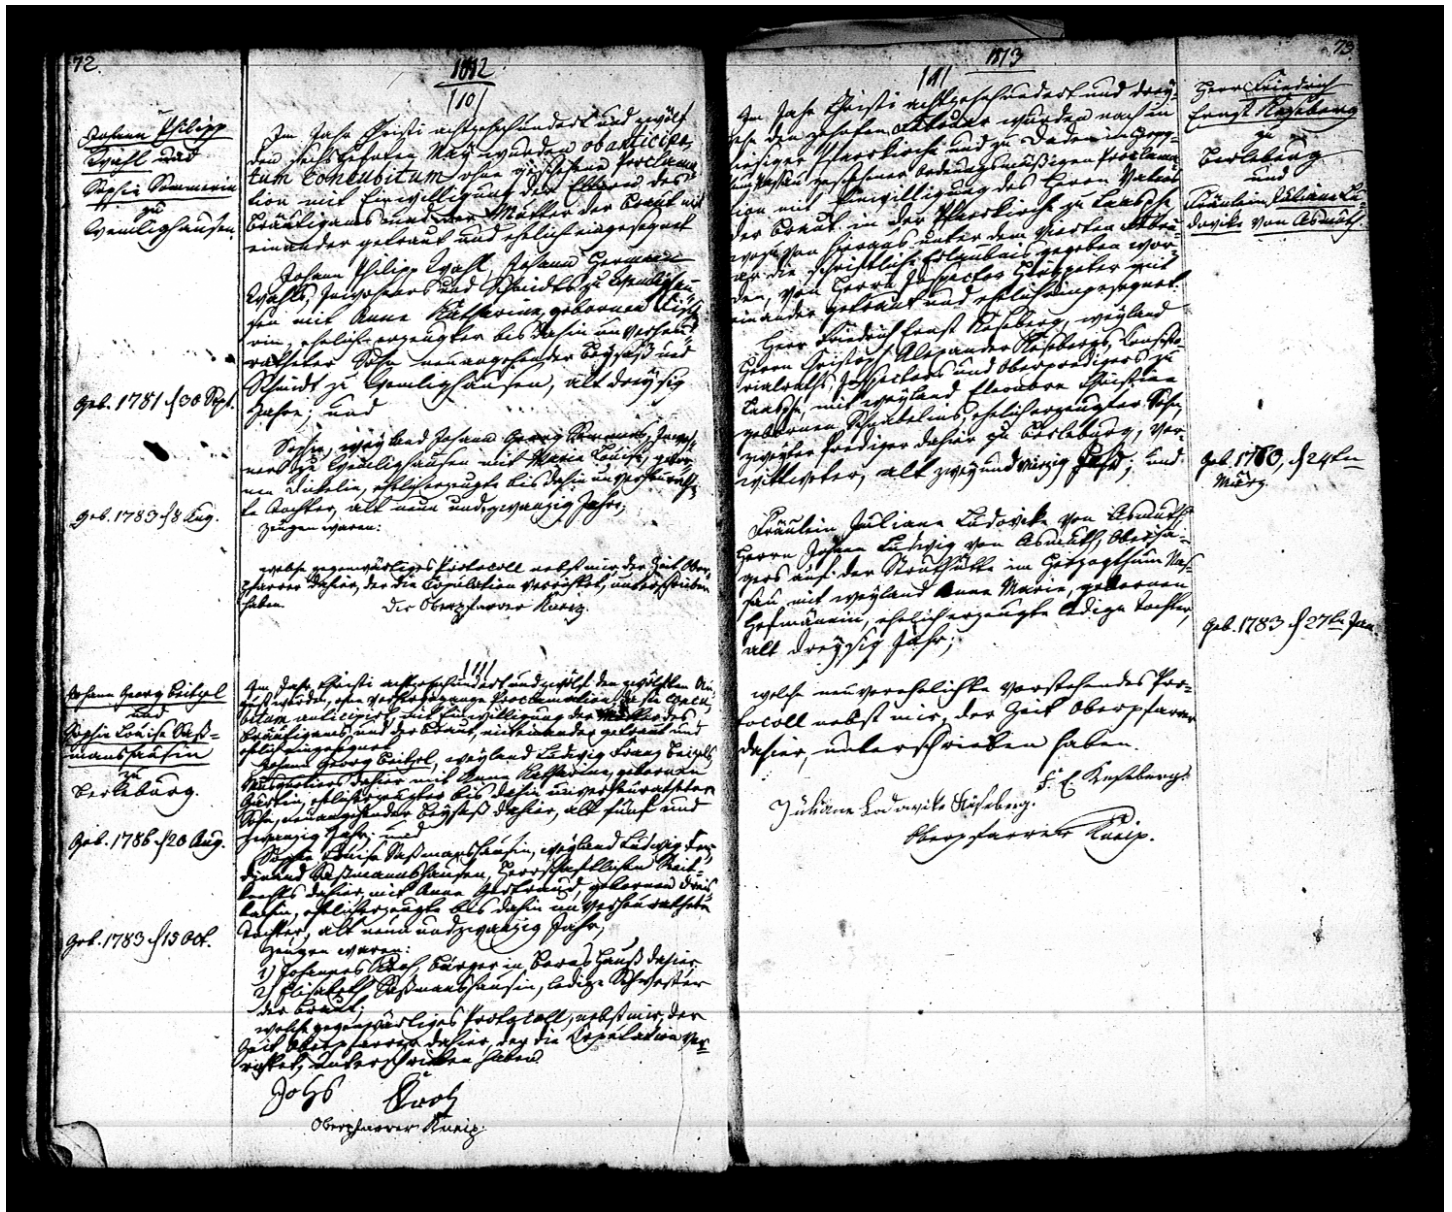 72.
1812
/10/
Johann Philipp
Wahl und
Sophie Sommerin
zu
Wemlighausen.
Im Jahr Christi achtzehnhundert und zwölf
den sechszehnten May wurden ob anticipa-
tum Concubitum ohne geschehene Proclama-
tion mit Einwilligung der Eltern des
Bräutigams und der Mutter der Braut mit
einander getraut und ehelich eingesegnet
Johann Philipp Wahl, Johann Hermann
Wahls, Inwohners und Schmidts zu Wemlighau-
sen mit Anne Katharine, gebornen
rin, ehelich erzeugter bis dahin unverheu-
ratheter Sohn neuangehender Beysaß und
Schmidt zu Wemlighausen, alt dreysig
Jahre; und
Geb. 1781 d 30 Sept.
Sophie, weyland Johann Georg Sommers, Inwoh-
ners zu Wemlighausen mit Marie Louise, gebor-
nen Dickelin, ehelich erzeugte bis dahin unverheurath-
te Tochter, alt neun und zwanzig Jahr;
Zeugen waren:
Geb. 1783 d 8 Aug.
welche gegenwärtiges Protocoll nebst mir der Zeit Ober-
pfarrer dahier, der die Copulation verrichtet, unterschrieben
haben.
Der Oberpfarrer Kneip.
/11/
Johann Georg Beitzel
und
Sophie Louise Saß-
manshausin
zu
Berleburg.
Im Jahr Christi achtzehnhundert und zwölf den zwölften Au-
gust wurden, ohne vorhergegangene Proclamation, ob concu-
bitum anticipat. mit Einwilligung der Mutter des
Bräutigams und der Braut, miteinander getraut und
ehelich eingesegnet
Johann Georg Beitzel, weyland Ludwig Franz Beitzels,
dahier mit Anne Katharine, gebornen
ehelich erzeugter bis dahin unverheuratheter
Sohn, neuangehender Beysaß dahier, alt fünf und
zwanzig Jahr; und
Geb. 1786 d 20 Aug.
Sophie Louise Saßmanshausin, weyland Ludwig Fer-
dinand Saßmanshausen, Herrschaftlichen Reit-
knechts dahier, mit Anne Gertraud, gebornen
ehelich erzeugte bis dahin unverheurathete
Tochter, alt neun und zwanzig Jahr;
Geb. 1783 d 15 Oct.
Zeugen waren:
1) Johannes Bürger in Hauß dahier
2) Elisabeth Saßmanshausin, ledige Schwester
der Braut;
welche gegenwärtiges Protocoll, nebst mir, der
Zeit Oberpfarrer dahier, der die Copulation ver-
richtet, unterschrieben haben.
Johs
Oberpfarrer Kneip.
73.
1813
/1/
Herr Friedrich
Ernst Keseberg
zu
Berleburg
und
Fräulein Juliane Lu-
dovike von Asmuth.
Im Jahr Christi achtzehnhundert und drey-
zehn den zehnten Februar wurden nach in
hiesiger Pfarrkirche und zu
Nassau geschehener ordnungsmäßigen Proclama-
tion mit Einwilligung des Herrn Vaters
der Braut in der Pfarrkirche zu Laasphe
wozu von Heraus unter dem vierten Febru-
ar die schriftliche Erlaubnis gegeben wor-
den, von Herrn Inspector mit
einander getraut und ehelich eingesegnet.
Herr Friedrich Ernst Keseberg, weyland
Herrn Christoph Alexander Kesebergs, Consisto-
rialraths, Inspectors und Oberpredigers zu
Laasphe, mit weyland Eleonore Christine
gebornen Schnabelius, ehelich erzeugter Sohn,
zweyter Prediger dahier zu Berleburg, Ver-
wittweter, alt zwey und vierzig Jahr; und
Geb. 1780, d 24ten
März.
Fräulein Juliane Ludovike von Asmuth
Herrn Johann Ludwig von Asmuth, Oberjä-
gers auf der Struthütte im Herzogthum Nas-
sau mit weyland Anne Marie, gebornen
Hofmännin, ehelich erzeugte ledige Tochter,
alt dreysig Jahr;
Geb. 1783 d 27ten Jan.
welche neuverehelichte vorstehendes Pro-
tocoll nebst mir, der Zeit Oberpfarrer
dahier, unterschrieben haben.
F. E. Keseberg
Juliane Lodowike Keseberg.
Oberpfarrer Kneip.